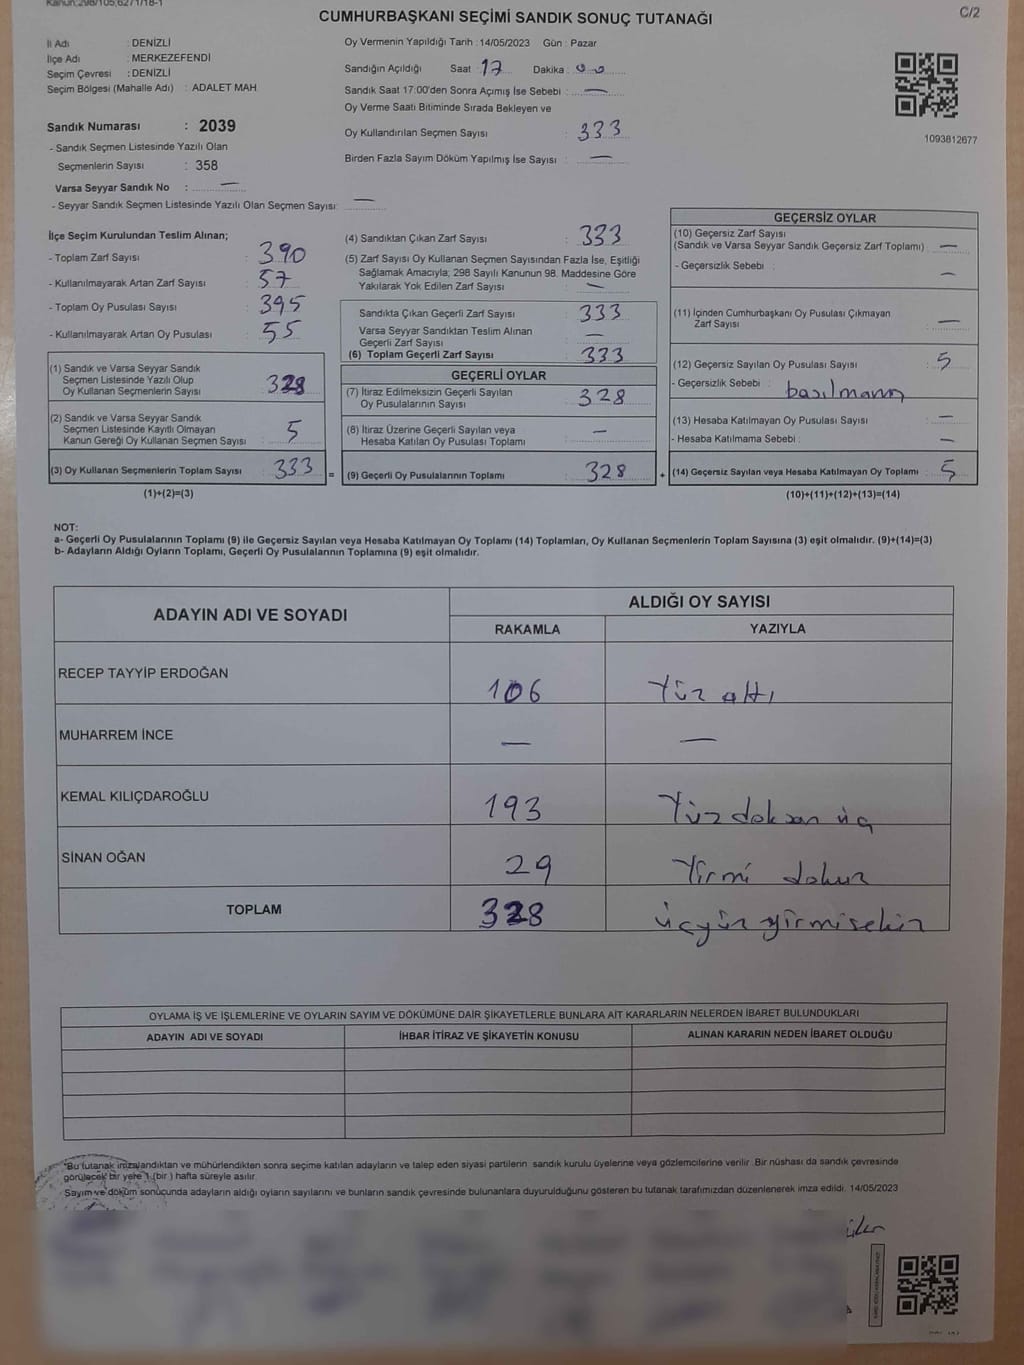 Kanun:298/105,6271/18-1
C/2
CUMHURBAŞKANI SEÇİMİ SANDIK SONUÇ TUTANAĞI
İl Adı : DENİZLİ
İlçe Adı : MERKEZEFENDİ
Seçim Çevresi : DENİZLİ
Seçim Bölgesi (Mahalle Adı) : ADALET MAH.
Sandık Numarası : 2039
- Sandık Seçmen Listesinde Yazılı Olan
Seçmenlerin Sayısı : 358
Varsa Seyyar Sandık No : —
- Seyyar Sandık Seçmen Listesinde Yazılı Olan Seçmen Sayısı: —
Oy Vermenin Yapıldığı Tarih : 14/05/2023 Gün : Pazar
Sandığın Açıldığı Saat : 17 Dakika : 00
Sandık Saat 17:00'den Sonra Açımış İse Sebebi : —
Oy Verme Saati Bitiminde Sırada Bekleyen ve
Oy Kullandırılan Seçmen Sayısı : 333
Birden Fazla Sayım Döküm Yapılmış İse Sayısı : —
1093812677
İlçe Seçim Kurulundan Teslim Alınan;
- Toplam Zarf Sayısı : 390
- Kullanılmayarak Artan Zarf Sayısı : 57
- Toplam Oy Pusulası Sayısı : 395
- Kullanılmayarak Artan Oy Pusulası : 55
(1) Sandık ve Varsa Seyyar Sandık
Seçmen Listesinde Yazılı Olup
Oy Kullanan Seçmenlerin Sayısı : 328
(2) Sandık ve Varsa Seyyar Sandık
Seçmen Listesinde Kayıtlı Olmayan
Kanun Gereği Oy Kullanan Seçmen Sayısı : 5
(3) Oy Kullanan Seçmenlerin Toplam Sayısı : 333
(1)+(2)=(3)
=
(4) Sandıktan Çıkan Zarf Sayısı : 333
(5) Zarf Sayısı Oy Kullanan Seçmen Sayısından Fazla İse, Eşitliği
Sağlamak Amacıyla; 298 Sayılı Kanunun 98. Maddesine Göre
Yakılarak Yok Edilen Zarf Sayısı : —
Sandıkta Çıkan Geçerli Zarf Sayısı : 333
Varsa Seyyar Sandıktan Teslim Alınan
Geçerli Zarf Sayısı : —
(6) Toplam Geçerli Zarf Sayısı : 333
GEÇERLİ OYLAR
(7) İtiraz Edilmeksizin Geçerli Sayılan
Oy Pusulalarının Sayısı : 328
(8) İtiraz Üzerine Geçerli Sayılan veya
Hesaba Katılan Oy Pusulası Toplamı : —
(9) Geçerli Oy Pusulalarının Toplamı : 328
+
GEÇERSİZ OYLAR
(10) Geçersiz Zarf Sayısı
(Sandık ve Varsa Seyyar Sandık Geçersiz Zarf Toplamı) : —
- Geçersizlik Sebebi : —
(11) İçinden Cumhurbaşkanı Oy Pusulası Çıkmayan
Zarf Sayısı : —
(12) Geçersiz Sayılan Oy Pusulası Sayısı : 5
- Geçersizlik Sebebi :
(13) Hesaba Katılmayan Oy Pusulası Sayısı : —
- Hesaba Katılmama Sebebi : —
(14) Geçersiz Sayılan veya Hesaba Katılmayan Oy Toplamı : 5
(10)+(11)+(12)+(13)=(14)
NOT:
a- Geçerli Oy Pusulalarının Toplamı (9) ile Geçersiz Sayılan veya Hesaba Katılmayan Oy Toplamı (14) Toplamları, Oy Kullanan Seçmenlerin Toplam Sayısına (3) eşit olmalıdır. (9)+(14)=(3)
b- Adayların Aldığı Oyların Toplamı, Geçerli Oy Pusulalarının Toplamına (9) eşit olmalıdır.
ADAYIN ADI VE SOYADI ALDIĞI OY SAYISI
RAKAMLA YAZIYLA
RECEP TAYYİP ERDOĞAN 106 Yüz altı
MUHARREM İNCE — —
KEMAL KILIÇDAROĞLU 193 Yüzdoksan üç
SİNAN OĞAN 29 Yirmi dokuz
TOPLAM 328 üçyüz yirmisekiz
OYLAMA İŞ VE İŞLEMLERİNE VE OYLARIN SAYIM VE DÖKÜMÜNE DAİR ŞİKAYETLERLE BUNLARA AİT KARARLARIN NELERDEN İBARET BULUNDUKLARI
ADAYIN ADI VE SOYADI İHBAR İTİRAZ VE ŞİKAYETİN KONUSU ALINAN KARARIN NEDEN İBARET OLDUĞU
"Bu tutanak imzalandıktan ve mühürlendikten sonra seçime katılan adayların ve talep eden siyasi partilerin sandık kurulu üyelerine veya gözlemcilerine verilir. Bir nüshası da sandık çevresinde
görülecek bir yere 1 (bir ) hafta süreyle asılır.
Sayım ve döküm sonucunda adayların aldığı oyların sayılarını ve bunların sandık çevresinde bulunanlara duyurulduğunu gösteren bu tutanak tarafımızdan düzenlenerek imza edildi. 14/05/2023